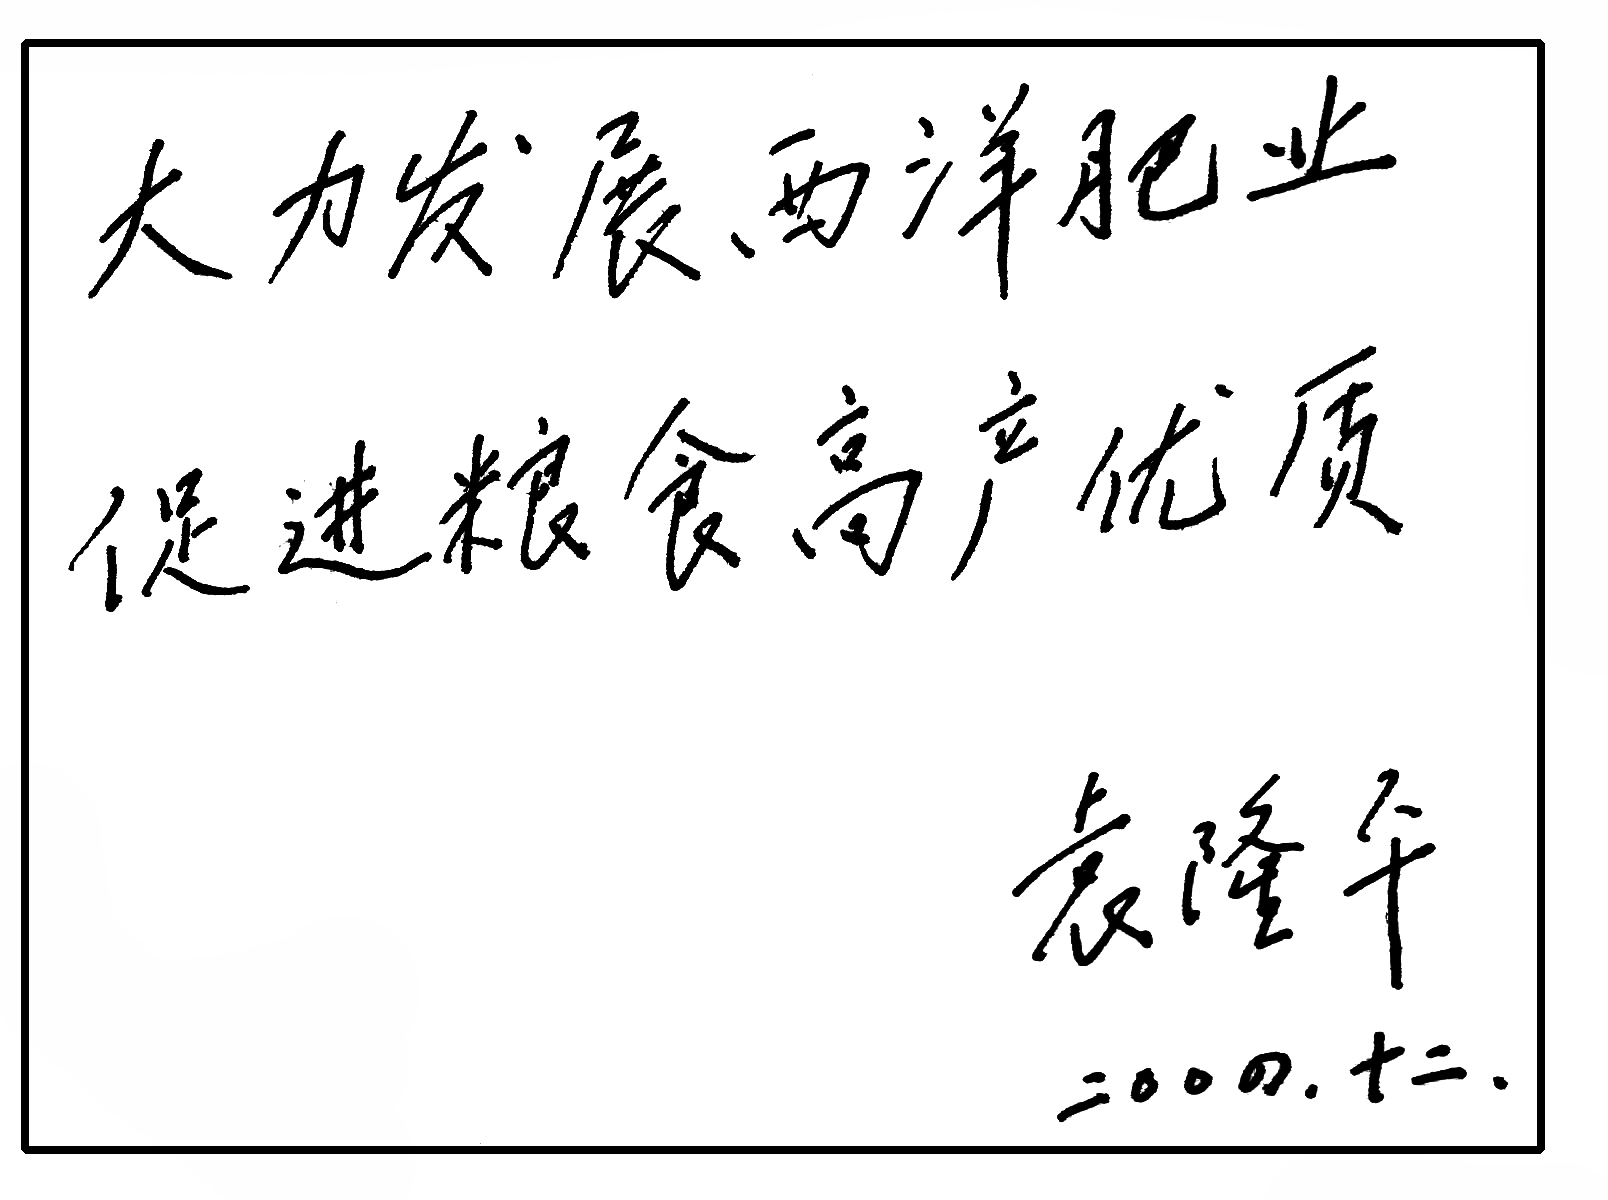 大力发展西洋肥业
促进粮食高产优质
袁隆平
二〇〇四.十二.